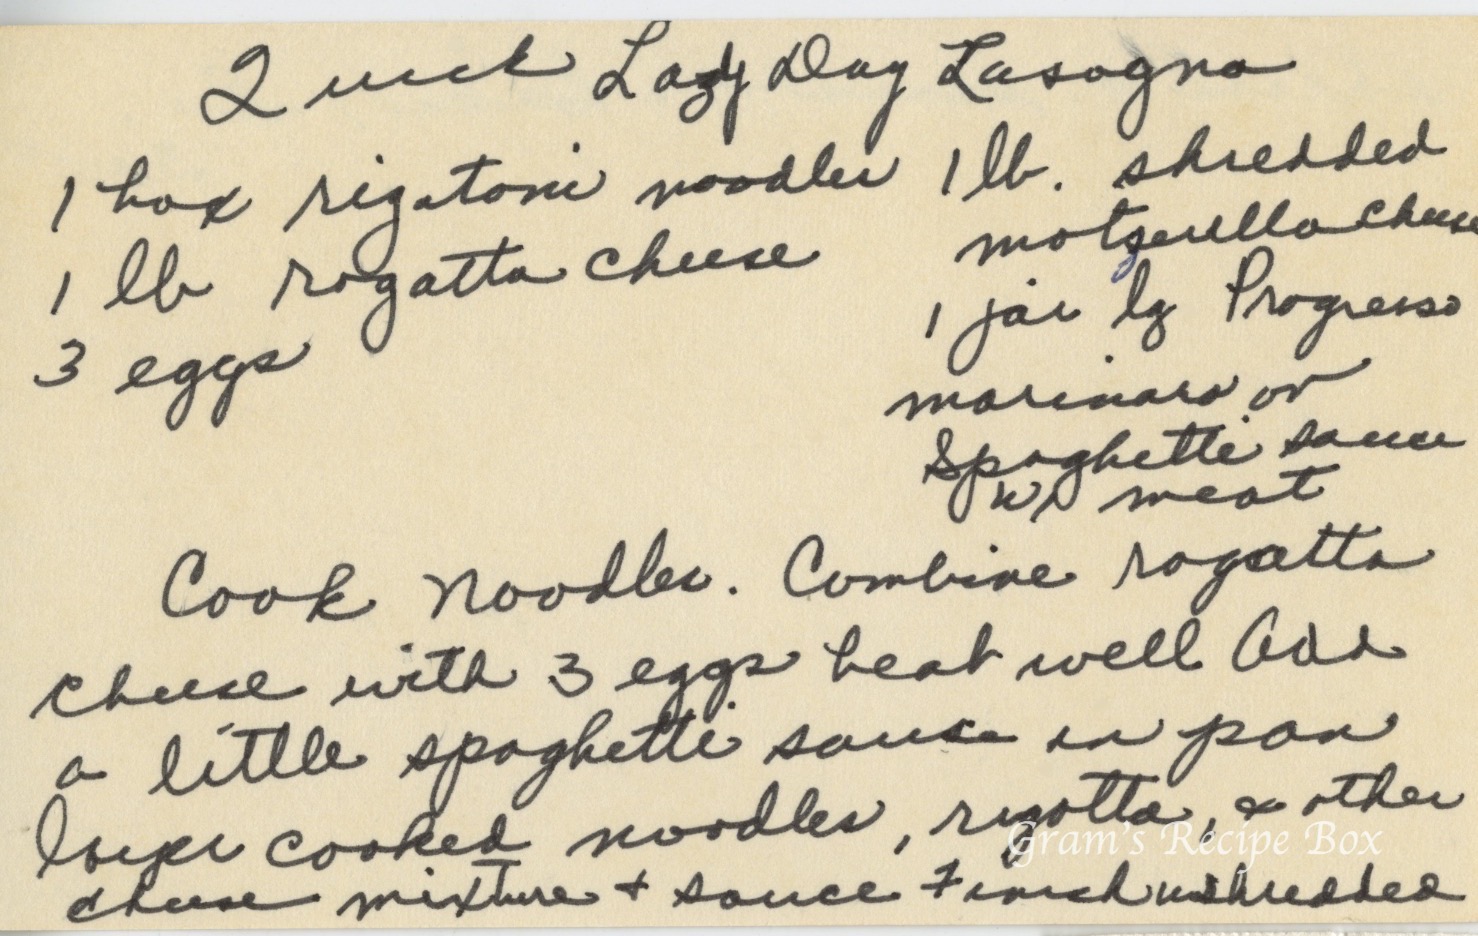 Quick Lazy Day Lasagna
1 box rigatoni noodles
1 lb rogatta cheese
3 eggs
1 lb. shredded
motzerella cheese
1 jar lg Progresso
marinara or
Spaghetti sauce
w/ meat
Cook Noodles. Combine rogatta
cheese with 3 eggs beat well Add
a little spaghetti sauce in pan
layer cooked noodles, rigotta, & other
cheese mixture + sauce Finish w shredded
Gram's Recipe Box